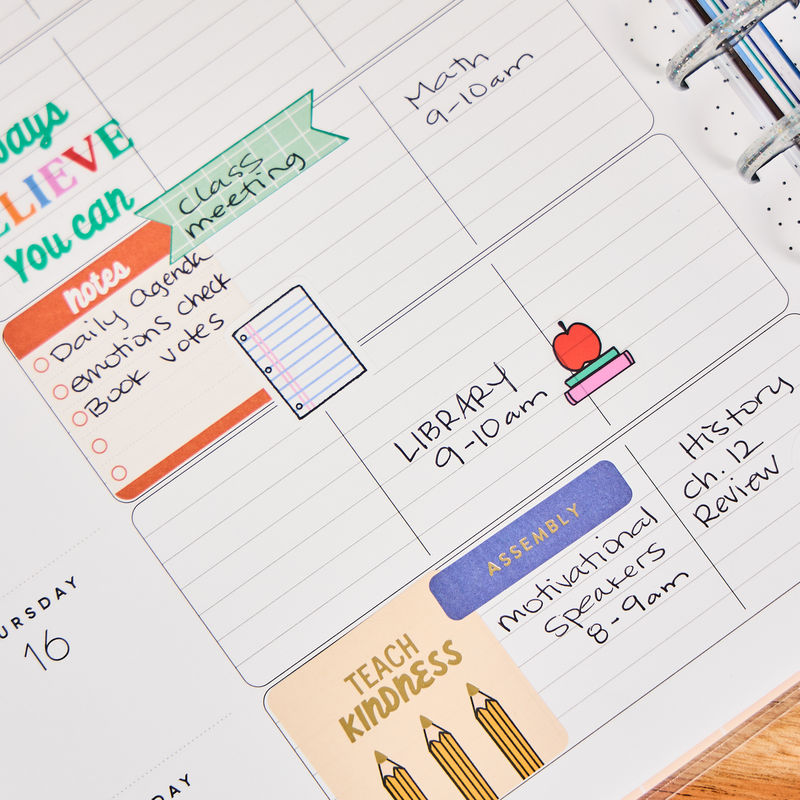 ays
LIEVE
you can
class
meeting
Math
9-10am
notes
Daily agenda
emotions check
Book votes
LIBRARY
9-10am
History
Ch. 12
Review
ASSEMBLY
motivational
speakers
8-9am
TEACH
KINDNESS
URSDAY
16
AY